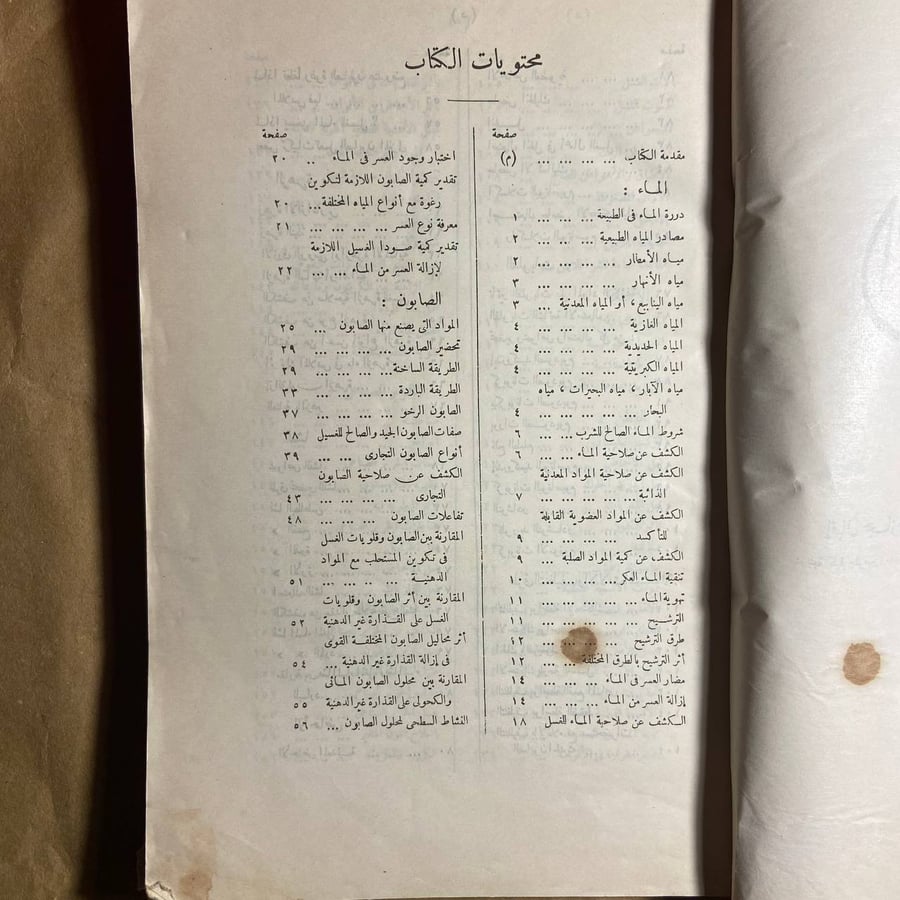 محتويات الكتاب
صفحة
مقدمة الكتاب ... ... ... ... (م)
المـاء :
دورة المـاء فى الطبيعة ... ... ... ١
مصادر المياه الطبيعية ... ... ... ٢
ميـاه الأمطار ... ... ... ... ٢
مياه الأنهار ... ... ... ... ٣
مياه الينابيع، أو المياه المعدنية ... ٣
المياه الغازية ... ... ... ... ٤
المياه الحديدية ... ... ... ... ٤
المياه الكبريتية ... ... ... ... ٤
مياه الآبار، مياه البحيرات، مياه
البحار ... ... ... ... ... ٤
شروط المـاء الصالح للشرب ... ... ٦
الكشف عن صلاحية المـاء ... ... ٦
الكشف عن صلاحية المواد المعدنية
الذائبة ... ... ... ... ... ٧
الكشف عن المواد العضوية القابلة
للتأكسد ... ... ... ... ... ٩
الكشف عن كمية المواد الصلبة ... ٩
تنقية المـاء العكر ... ... ... ... ١٠
تهوية المـاء ... ... ... ... ... ١١
الترشـيح ... ... ... ... ... ١١
طرق الترشيح ... ... ... ... ١٢
أثر الترشيح بالطرق المختلفة ... ... ١٢
مضار العسر فى المـاء ... ... ... ١٤
إزالة العسر من المـاء ... ... ... ١٤
الكشف عن صلاحية المـاء للغسل ١٨
صفحة
اختبار وجود العسر فى المـاء .. ٢٠
تقدير كمية الصابون اللازمة لتكوين
رغوة مع أنواع المياه المختلفة ... ٢٠
معرفة نوع العسر ... ... ... ... ٢١
تقدير كمية صـودا الغسيل اللازمة
لإزالة العسر من المـاء ... ... ٢٢
الصابون :
المواد التى يصنع منها الصابون ... ٢٥
تحضير الصابون ... ... ... ... ٢٩
الطريقة الساخنة ... ... ... ... ٢٩
الطريقة الباردة ... ... ... ... ٣٣
الصابون الرخو ... ... ... ... ٣٧
صفات الصابون الجيد والصالح للغسيل ٣٨
أنواع الصابون التجارى ... ... ... ٣٩
الكشف عن صلاحية الصابون
التجارى ... ... ... ... ٤٣
تفاعلات الصابون ... ... ... ٤٨
المقارنة بين الصابون وقلويات الغسل
فى تكوين المستحلب مع المواد
الدهنية ... .. ... ... ٥١
المقارنة بين أثر الصابون وقلويات
الغسل على القـذارة غير الدهنية ... ٥٢
أثر محاليل الصابون المختلفـة القوى
فى إزالة القذارة غير الدهنية ... ... ٥٤
المقارنة بين محلول الصابون المـائى
والكحولى على القذارة غير الدهنية ٥٥
النشاط السطحى لمحلول الصابون ... ٥٦